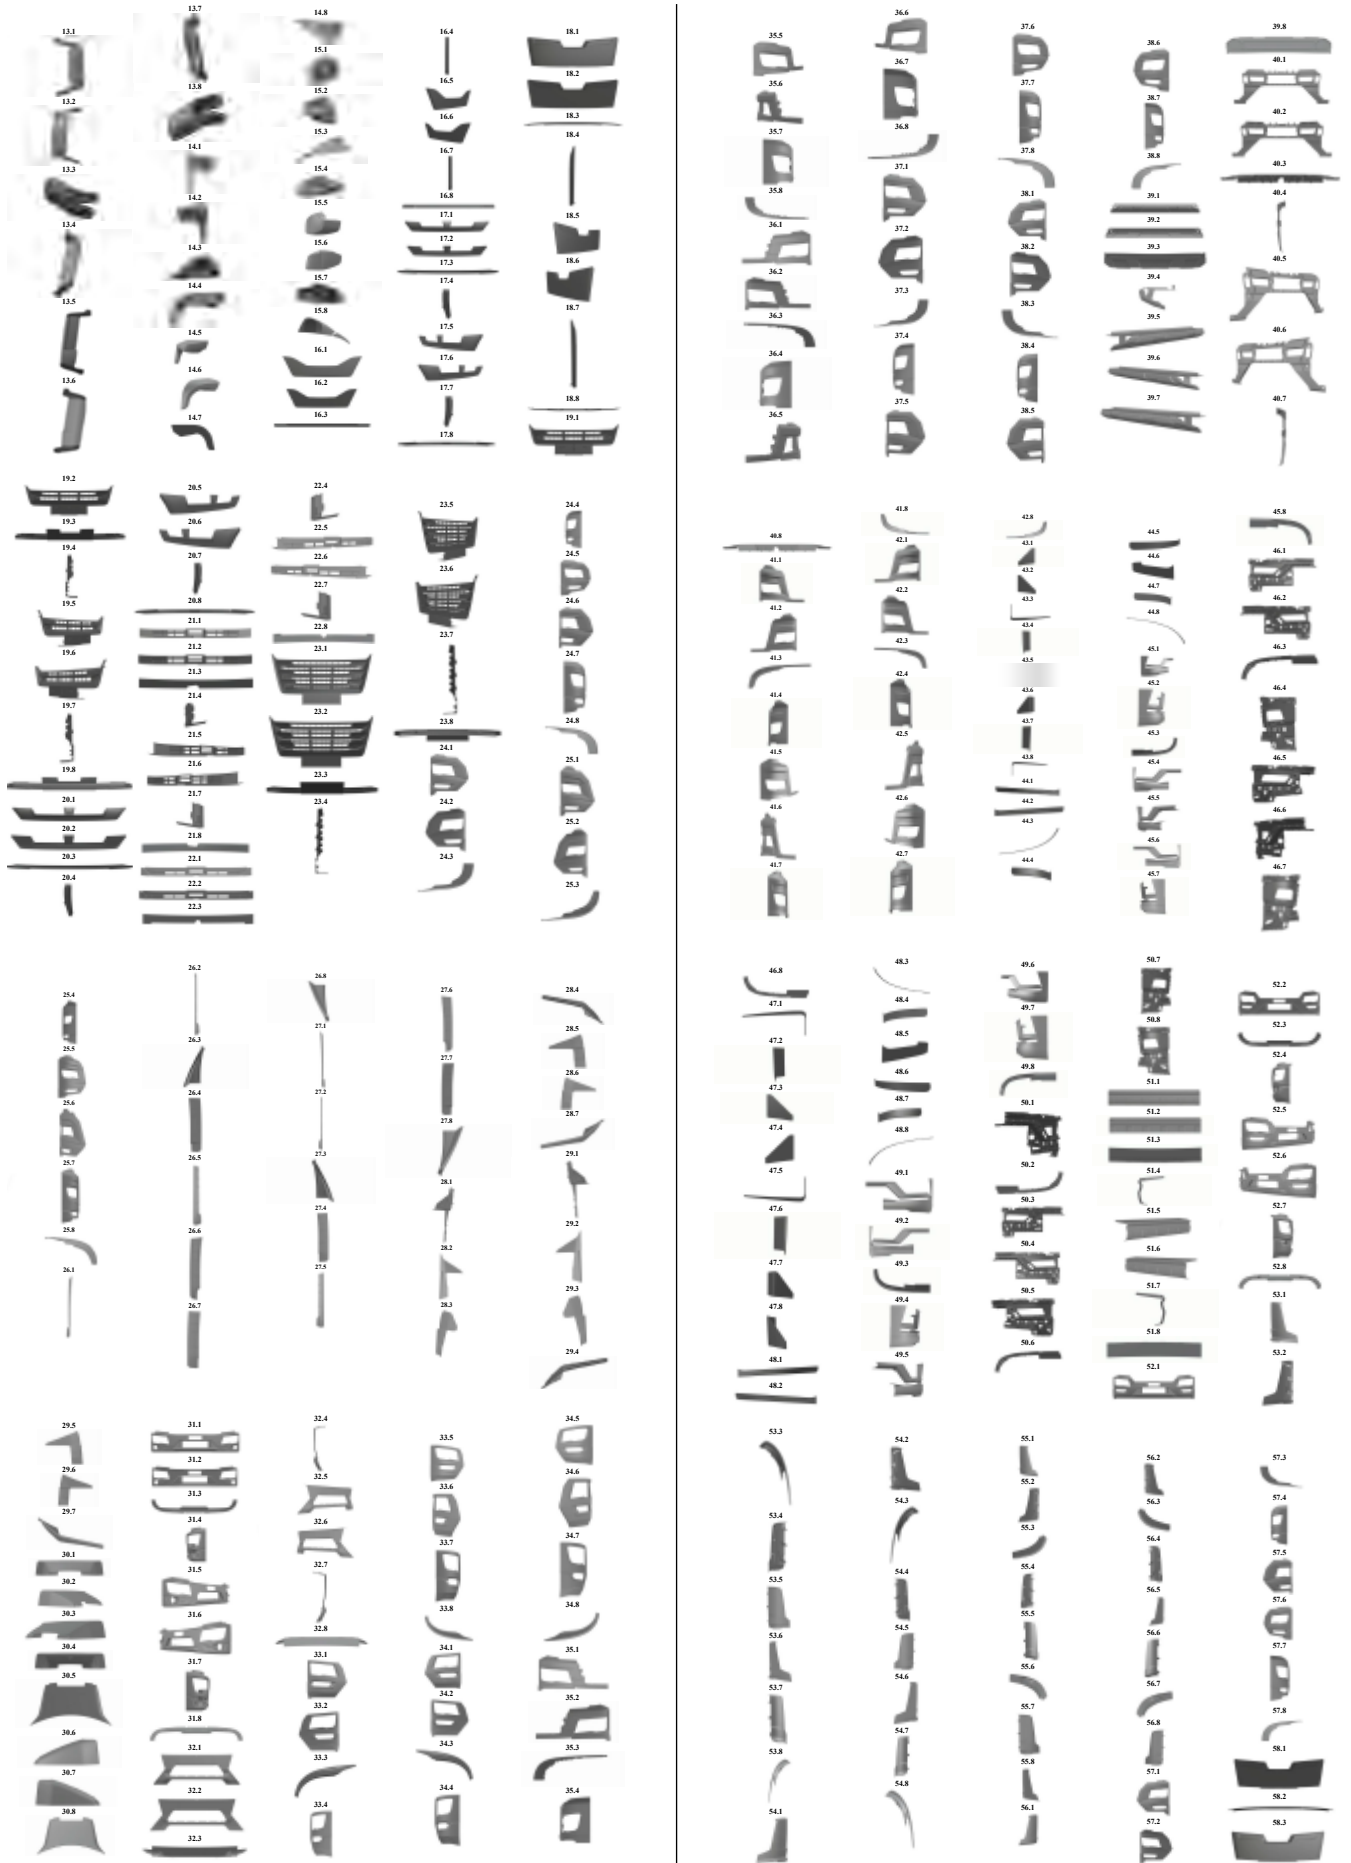 13.1
13.2
13.3
13.4
13.5
13.6
13.7
13.8
14.1
14.2
14.3
14.4
14.5
14.6
14.7
14.8
15.1
15.2
15.3
15.4
15.5
15.6
15.7
15.8
16.1
16.2
16.3
16.4
16.5
16.6
16.7
16.8
17.1
17.2
17.3
17.4
17.5
17.6
17.7
17.8
18.1
18.2
18.3
18.4
18.5
18.6
18.7
18.8
19.1
19.2
19.3
19.4
19.5
19.6
19.7
19.8
20.1
20.2
20.3
20.4
20.5
20.6
20.7
20.8
21.1
21.2
21.3
21.4
21.5
21.6
21.7
21.8
22.1
22.2
22.3
22.4
22.5
22.6
22.7
22.8
23.1
23.2
23.3
23.4
23.5
23.6
23.7
23.8
24.1
24.2
24.3
24.4
24.5
24.6
24.7
24.8
25.1
25.2
25.3
25.4
25.5
25.6
25.7
25.8
26.1
26.2
26.3
26.4
26.5
26.6
26.7
26.8
27.1
27.2
27.3
27.4
27.5
27.6
27.7
27.8
28.1
28.2
28.3
28.4
28.5
28.6
28.7
29.1
29.2
29.3
29.4
29.5
29.6
29.7
30.1
30.2
30.3
30.4
30.5
30.6
30.7
30.8
31.1
31.2
31.3
31.4
31.5
31.6
31.7
31.8
32.1
32.2
32.3
32.4
32.5
32.6
32.7
32.8
33.1
33.2
33.3
33.4
33.5
33.6
33.7
33.8
34.1
34.2
34.3
34.4
34.5
34.6
34.7
34.8
35.1
35.2
35.3
35.4
35.5
35.6
35.7
35.8
36.1
36.2
36.3
36.4
36.5
36.6
36.7
36.8
37.1
37.2
37.3
37.4
37.5
37.6
37.7
37.8
38.1
38.2
38.3
38.4
38.5
38.6
38.7
38.8
39.1
39.2
39.3
39.4
39.5
39.6
39.7
39.8
40.1
40.2
40.3
40.4
40.5
40.6
40.7
40.8
41.1
41.2
41.3
41.4
41.5
41.6
41.7
41.8
42.1
42.2
42.3
42.4
42.5
42.6
42.7
42.8
43.1
43.2
43.3
43.4
43.5
43.6
43.7
43.8
44.1
44.2
44.3
44.4
44.5
44.6
44.7
44.8
45.1
45.2
45.3
45.4
45.5
45.6
45.7
45.8
46.1
46.2
46.3
46.4
46.5
46.6
46.7
46.8
47.1
47.2
47.3
47.4
47.5
47.6
47.7
47.8
48.1
48.2
48.3
48.4
48.5
48.6
48.7
48.8
49.1
49.2
49.3
49.4
49.5
49.6
49.7
49.8
50.1
50.2
50.3
50.4
50.5
50.6
50.7
50.8
51.1
51.2
51.3
51.4
51.5
51.6
51.7
51.8
52.1
52.2
52.3
52.4
52.5
52.6
52.7
52.8
53.1
53.2
53.3
53.4
53.5
53.6
53.7
53.8
54.1
54.2
54.3
54.4
54.5
54.6
54.7
54.8
55.1
55.2
55.3
55.4
55.5
55.6
55.7
55.8
56.1
56.2
56.3
56.4
56.5
56.6
56.7
56.8
57.1
57.2
57.3
57.4
57.5
57.6
57.7
57.8
58.1
58.2
58.3